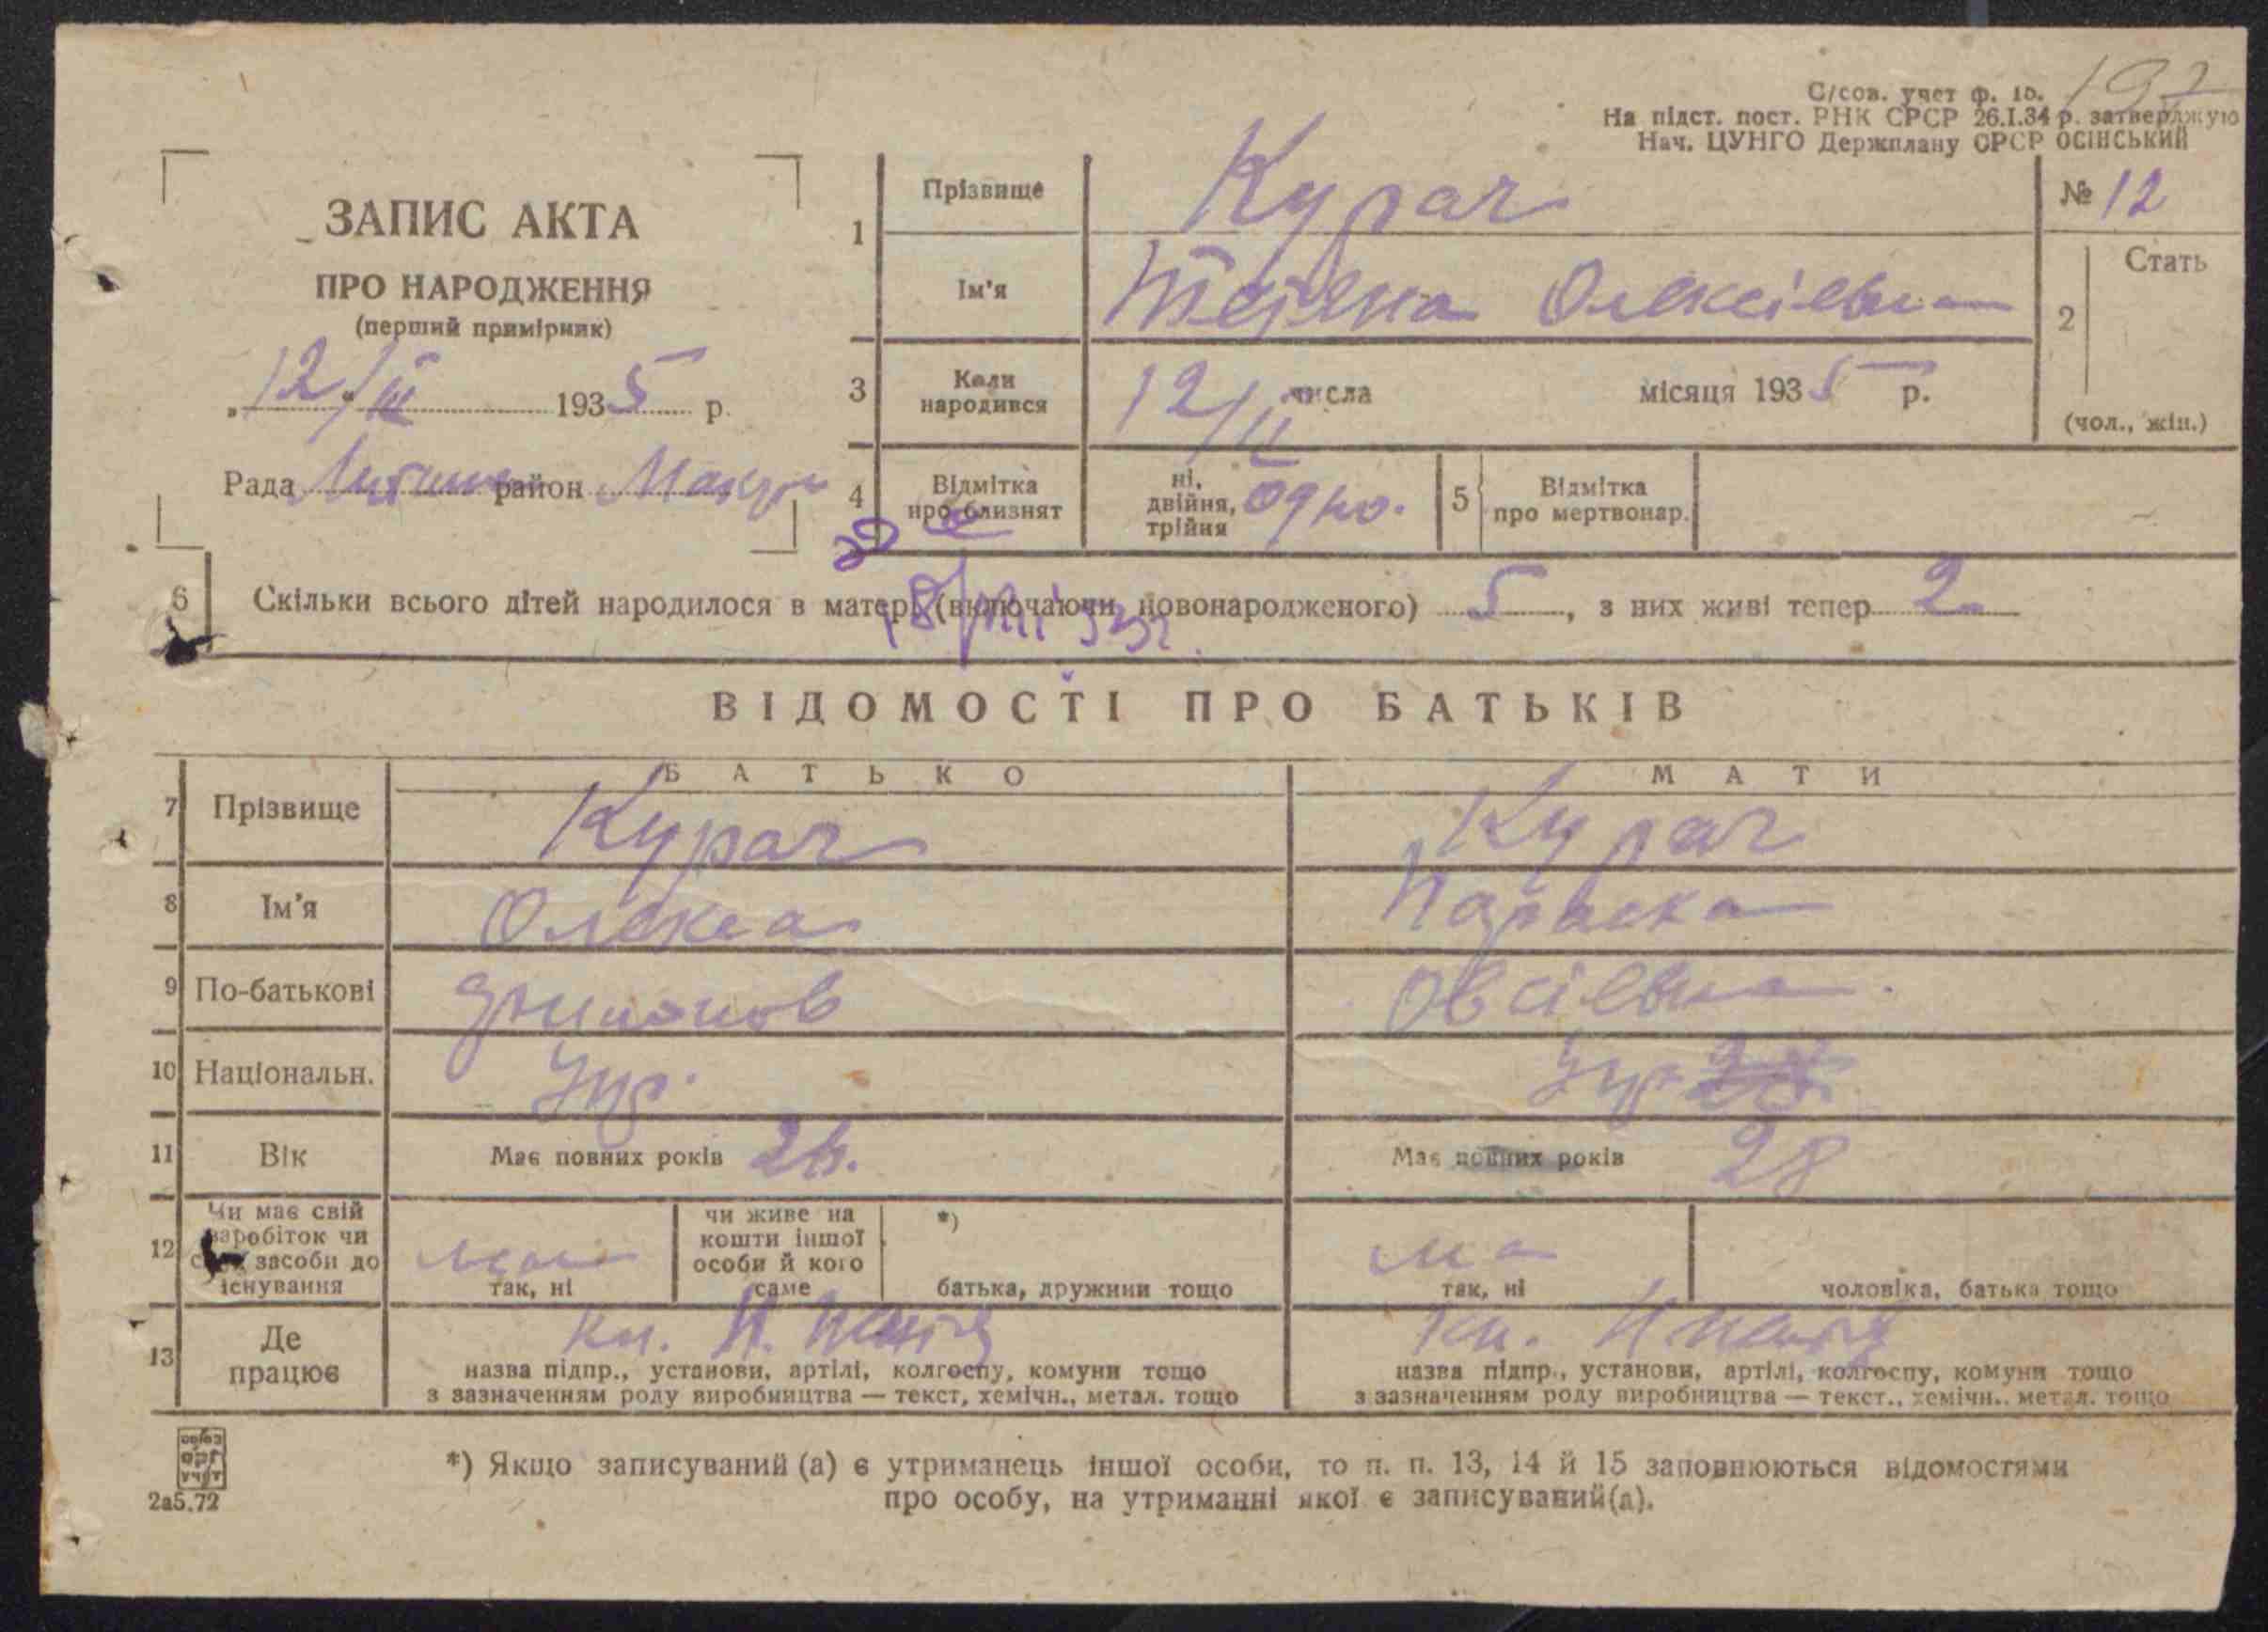 197
С/сов. учет ф. 1б.
На підст. пост. РНК СРСР 26.I.34 р. затверджую
Нач. ЦУНГО Держплану СРСР ОСІНСЬКИЙ
ЗАПИС АКТА
ПРО НАРОДЖЕННЯ
(перший примірник)
„12/III" 1935 р.
Рада район Макар
1 Прізвище Курач № 12
Ім'я Тетяна Олексіевна
2 Стать
(чол., жін.)
3 Коли народився 12/II числа місяця 1935 р.
4 Відмітка про близнят ні, двійня, трійня одно.
5 Відмітка про мертвонар. —
6 Скільки всього дітей народилося в матері (включаючи новонародженого) 5, з них живі тепер 2
ВІДОМОСТІ ПРО БАТЬКІВ
БАТЬКО МАТИ
7 Прізвище Курач Курач
8 Ім'я Олекса Параска
9 По-батькові Овсіевна
10 Національн. Укр. Укр
11 Вік Має повних років 26. Має повних років 28
12 Чи має свій заробіток чи свої засоби до існування
так, ні
чи живе на кошти іншої особи й кого саме
*)
батька, дружини тощо
ма
так, ні
чоловіка, батька тощо
13 Де працює
назва підпр., установи, артілі, колгоспу, комуни тощо
з зазначенням роду виробництва — текст, хемічн., метал. тощо
назва підпр., установи, артілі, колгоспу, комуни тощо
з зазначенням роду виробництва — текст., хемічн., метал. тощо
*) Якщо записуваний (а) є утриманець іншої особи, то п. п. 13, 14 й 15 заповнюються відомостями
про особу, на утриманні якої є записуваний(а).
2а5.72